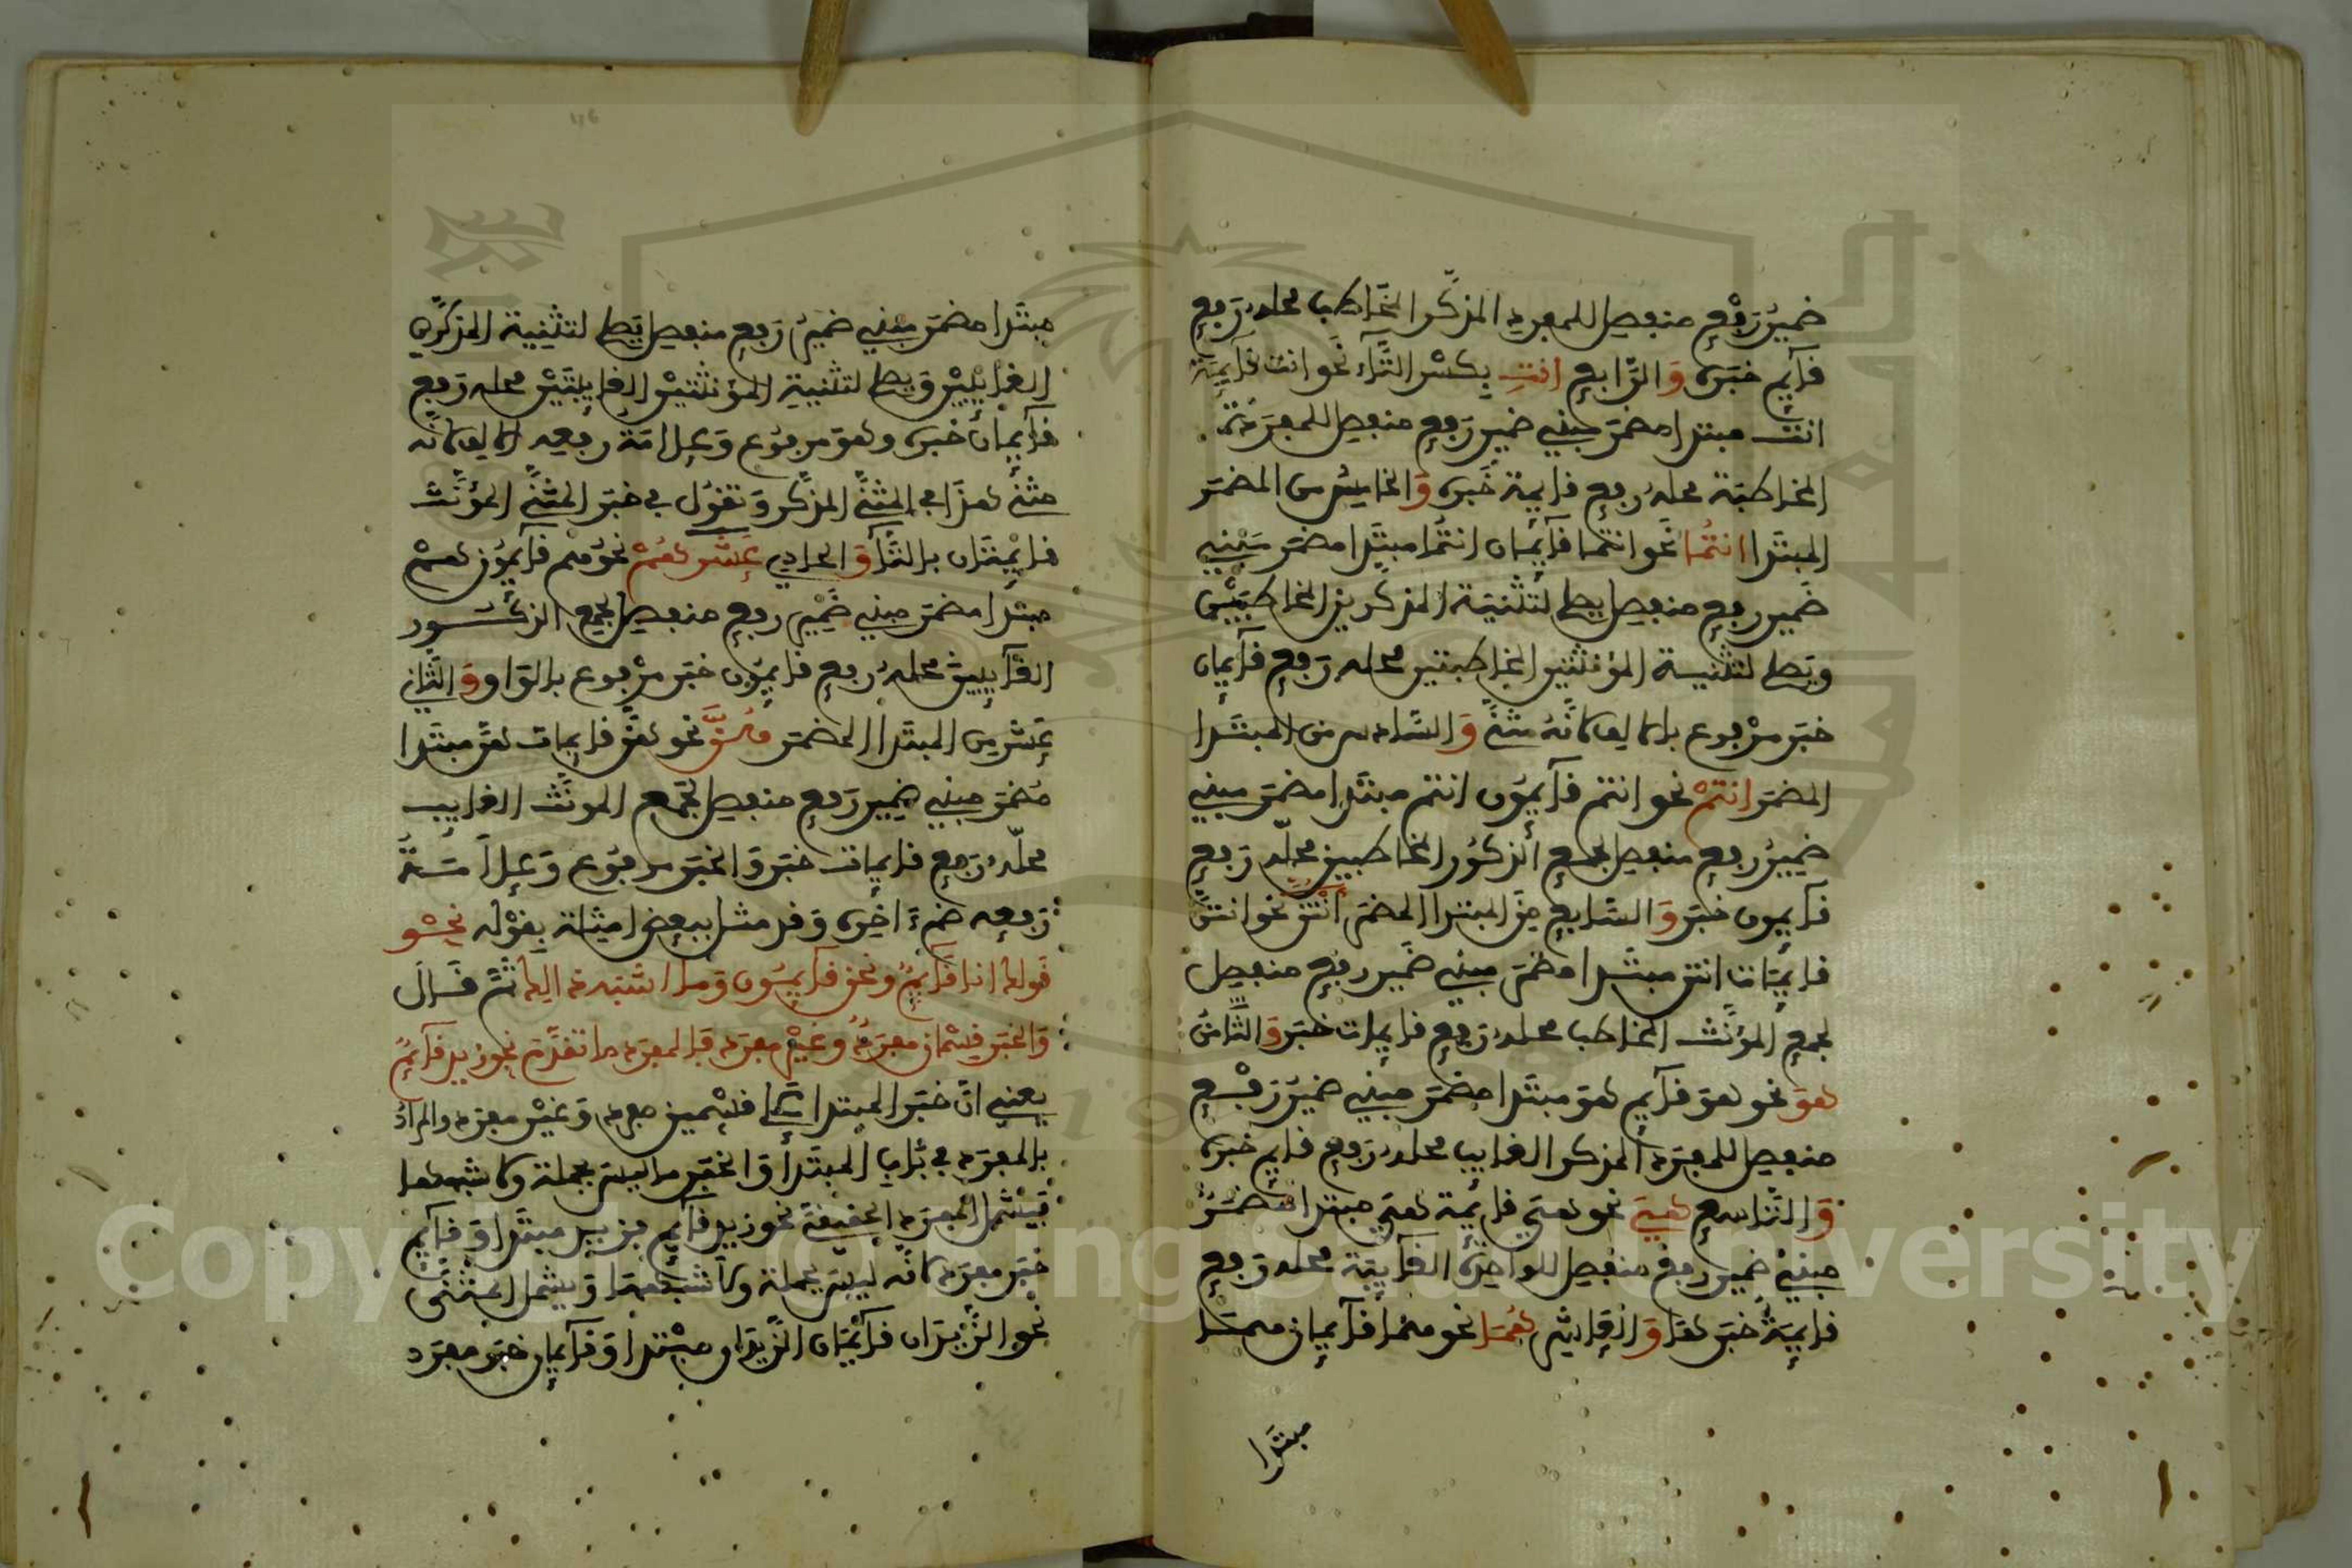 ضمير رفع منفصل للمفرد المذكر المخاطب محله رفع
قآيم خبره والرابع انتِ بكسر التاء نحو انت قآيمة
انت مبتدا مضمر مبني ضمير رفع منفصل للمفردة
المخاطبة محله رفع قايمة خبره والخامس من المضمر
المبتدا انتما نحو انتما قآيمان انتما مبتدا مضمر مبني
ضمير رفع منفصل يصلح لتثنية المذكرين المخاطبين
ويصلح لتثنية المؤنثتين المخاطبتين محله رفع قآيمان
خبر مرفوع بالالف لانه مثنى والسادس من المبتدا
المضمر انتم نحو انتم قآيمون انتم مبتدا مضمر مبني
ضمير رفع منفصل لجمع الذكور المخاطبين محله رفع
قآيمون خبر والسابع من المبتدا المضمر انتن نحو انتن
قايمات انتن مبتدا مضمر مبني ضمير رفع منفصل
لجمع المؤنث المخاطب محله رفع قايمات خبر والثامن
هو نحو هو قآيم هو مبتدا مضمر مبني ضمير رفع
منفصل للمفرد المذكر الغايب محله رفع قايم خبره
والتاسع هي نحو هي قايمة هي مبتدا مضمر
مبني ضمير رفع منفصل للواحدة الغآيبة محله رفع
قايمة خبر هما والعاشر هما نحو هما قآيمان هما
مبتدا
مبتدا مضمر مبني ضمير رفع منفصل يصلح لتثنية المذكرين
الغايبين ويصلح لتثنية المؤنثتين الغايبتين محله رفع
قآيمان خبره وهو مرفوع وعلامة رفعه الالف لانه
مثنى هذا في المثنى المذكر وتقول في خبر المثنى المؤنث
قايمتان بالتا والحادي عشر هم نحو هم قآيمون هم
مبتدا مضمر مبني ضمير رفع منفصل لجمع الذكور
الغآيبين محله رفع قايمون خبر مرفوع بالواو والثاني
عشر من المبتدا المضمر هن نحو هن قايمات هن مبتدا
مضمر مبني ضمير رفع منفصل لجمع المونث الغايب
محله رفع قايمات خبر والخبر مرفوع وعلامة
رفعه ضمة اخره وقد مثل ببعض امثلة بقوله نحو
قولك انا قآيم ونحن قآيمون وما اشبه ذلك ثم قال
والخبر قسمان مفرد وغير مفرد فالمفرد ما تقدم نحو زيد قآيم
يعني ان خبر المبتدا على قسمين مفرد وغير مفرد والمراد
بالمفرد في باب المبتدا والخبر ما ليس بجملة ولا شبهها
فيشمل المفرد الحقيقة نحو زيد قآيم فزيد مبتدا وقآيم
خبر مفرد لانه ليس بجملة ولا شبهها ويشمل المثنى
نحو الزيدان قآيمان الزيدان مبتدا وقآيمان خبر مفرد
Copyright © King Saud University